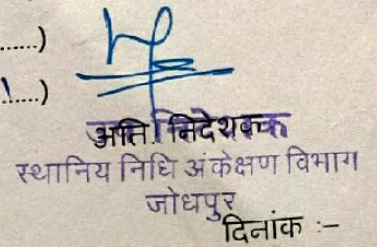 ......)
......)
अति. निदेशक
स्थानिय निधि अंकेक्षण विभाग
जोधपुर
दिनांक :-